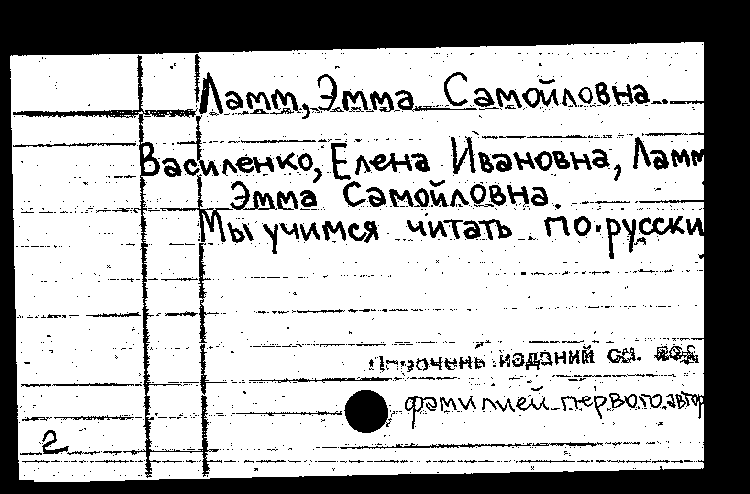 Ламм, Эмма Самойловна.
Василенко, Елена Ивановна, Ламм
Эмма Самойловна.
Мы учимся читать по-русски
Перечень изданий см. под
фамилией первого автор
г